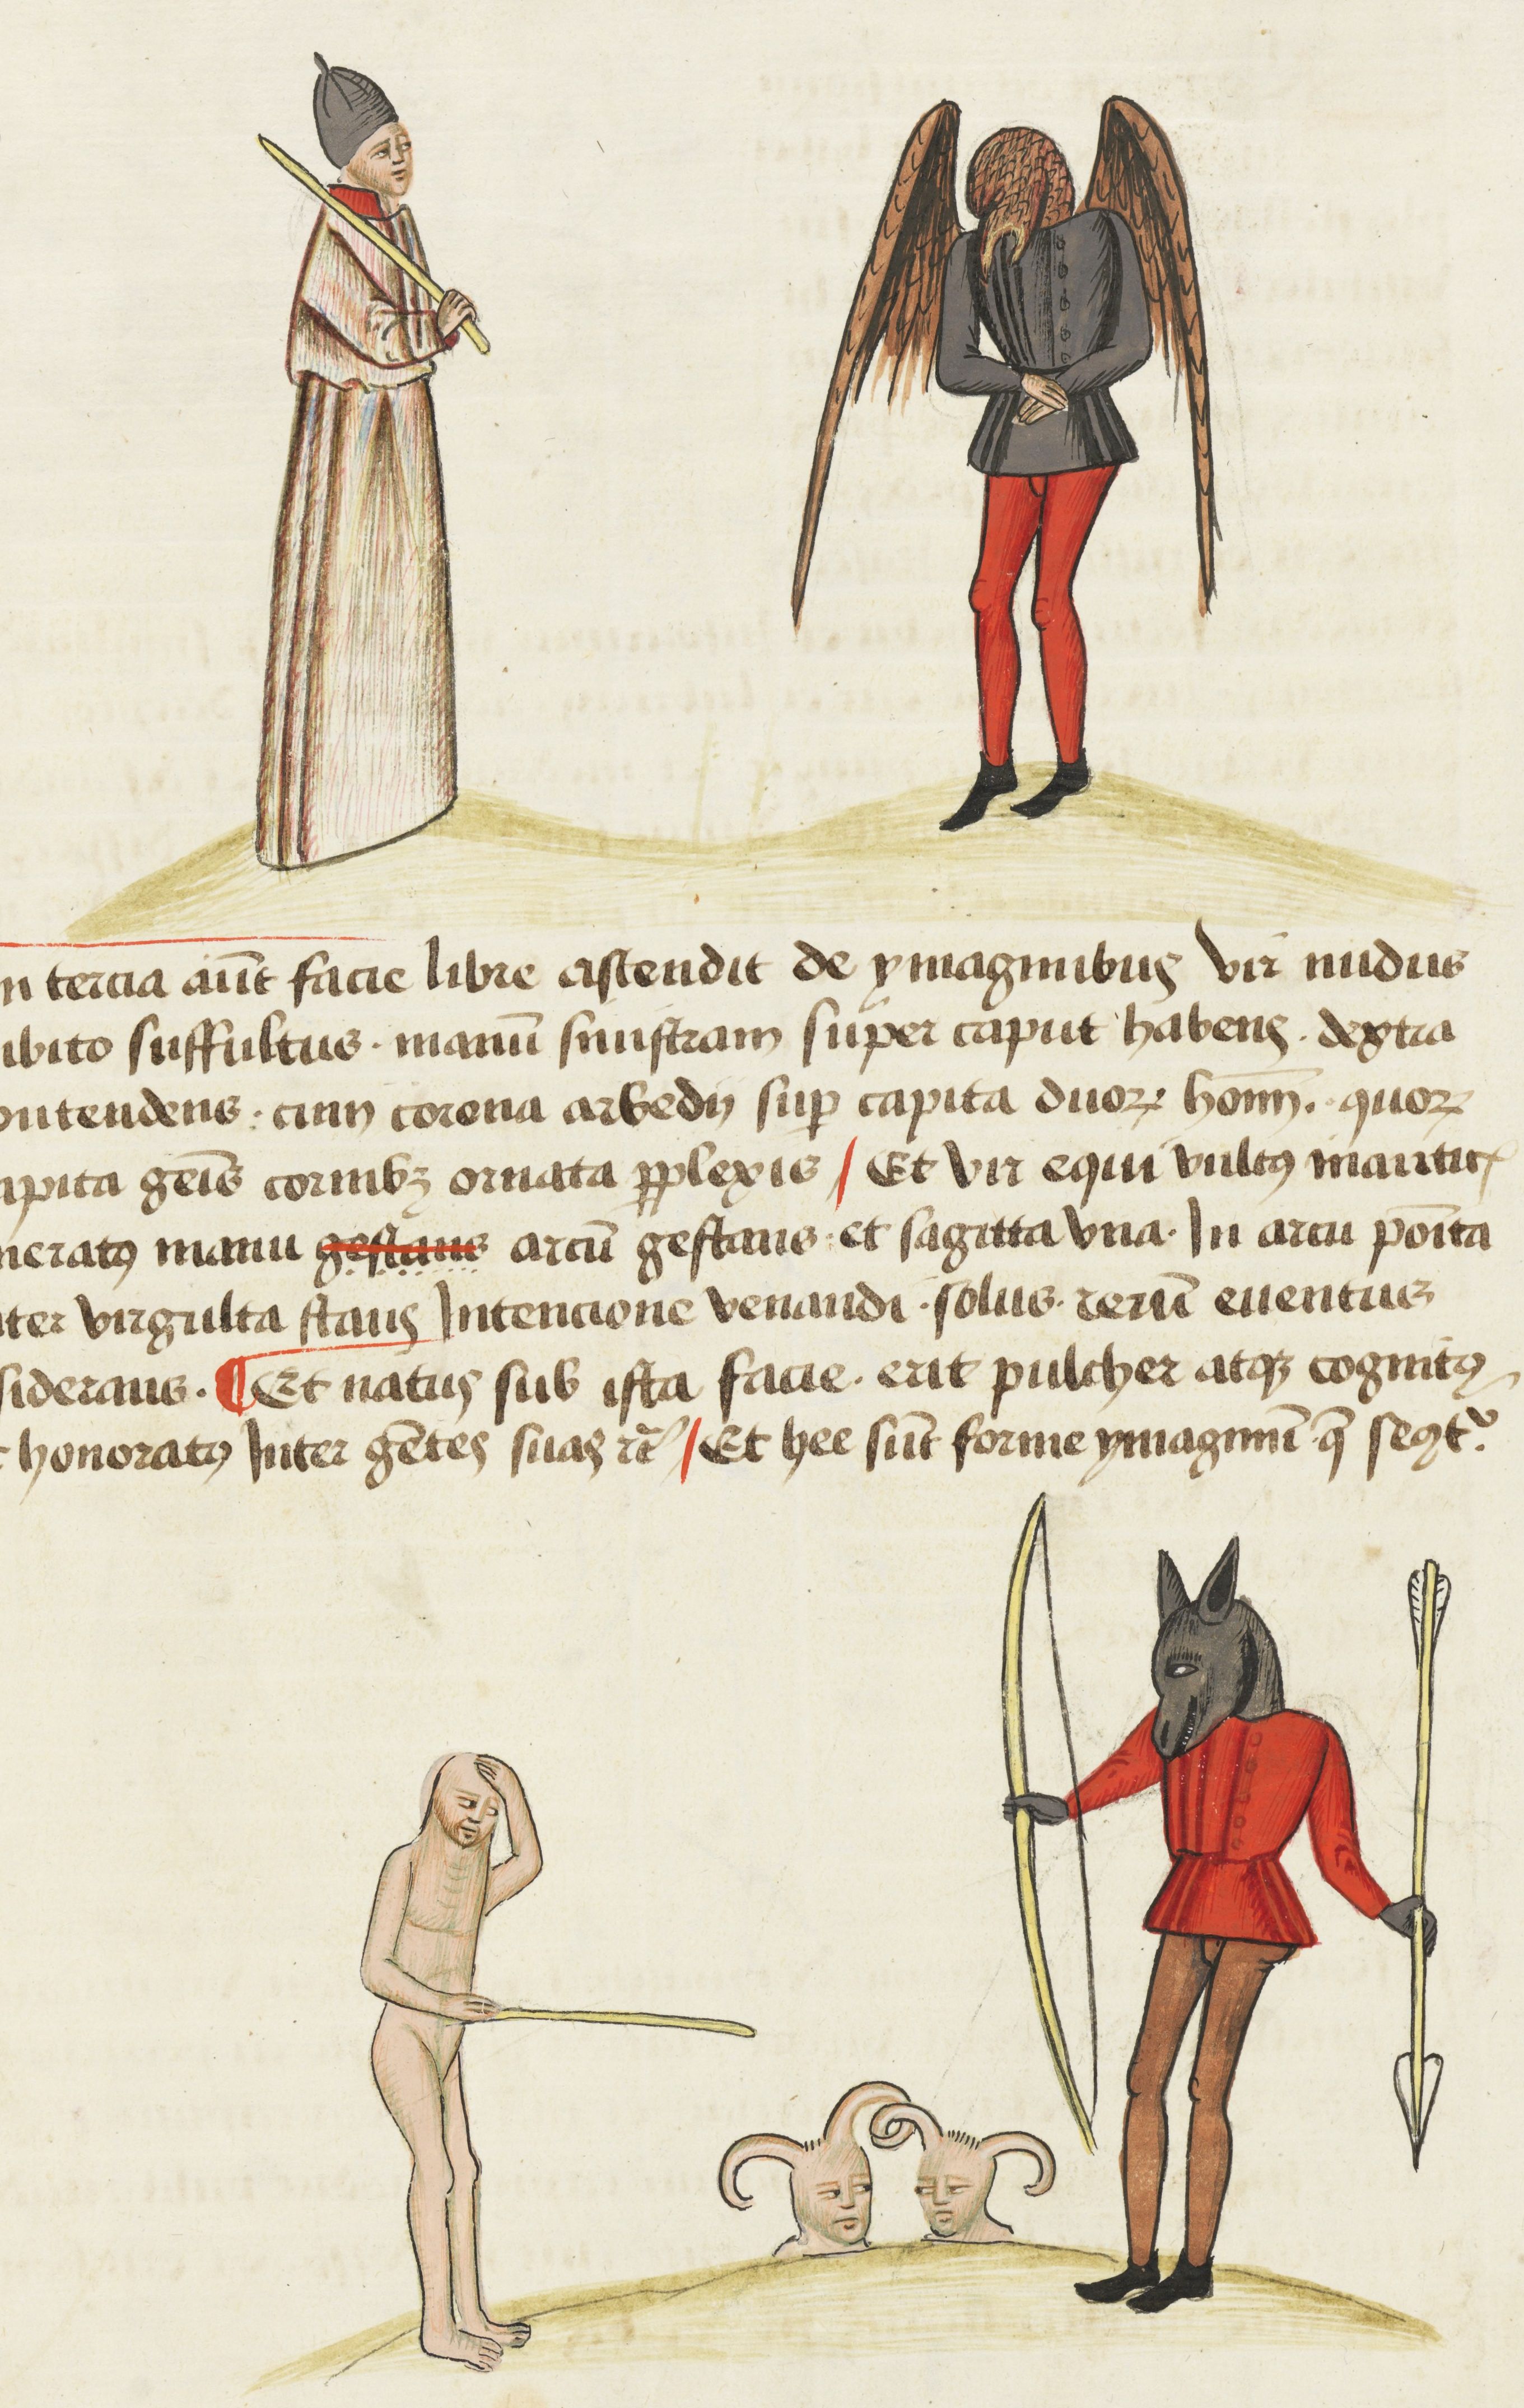 n tercia aūt facie libre ascendit de ymaginibus vir nudus
ubito suffultus · manū sinistram super caput habens · dextra
ontendens · cum corona arbedij sup capita duoꝝ hom̄. quoꝝ
apita geīs cornibꝫ ornata ꝑplexis / Et vir equi vultꝰ
neratꝰ manu gestans arcū gestans · et sagitta vna · In arcu poīta
nter virgulta stans Intencione venandi · solus · rerū euentus
siderans · ¶ Et natus sub ista facie · erit pulcher atqꝫ cognitꝰ
t honoratꝰ Inter gētes suas / Et hee sūt forme ymaginū · q̄